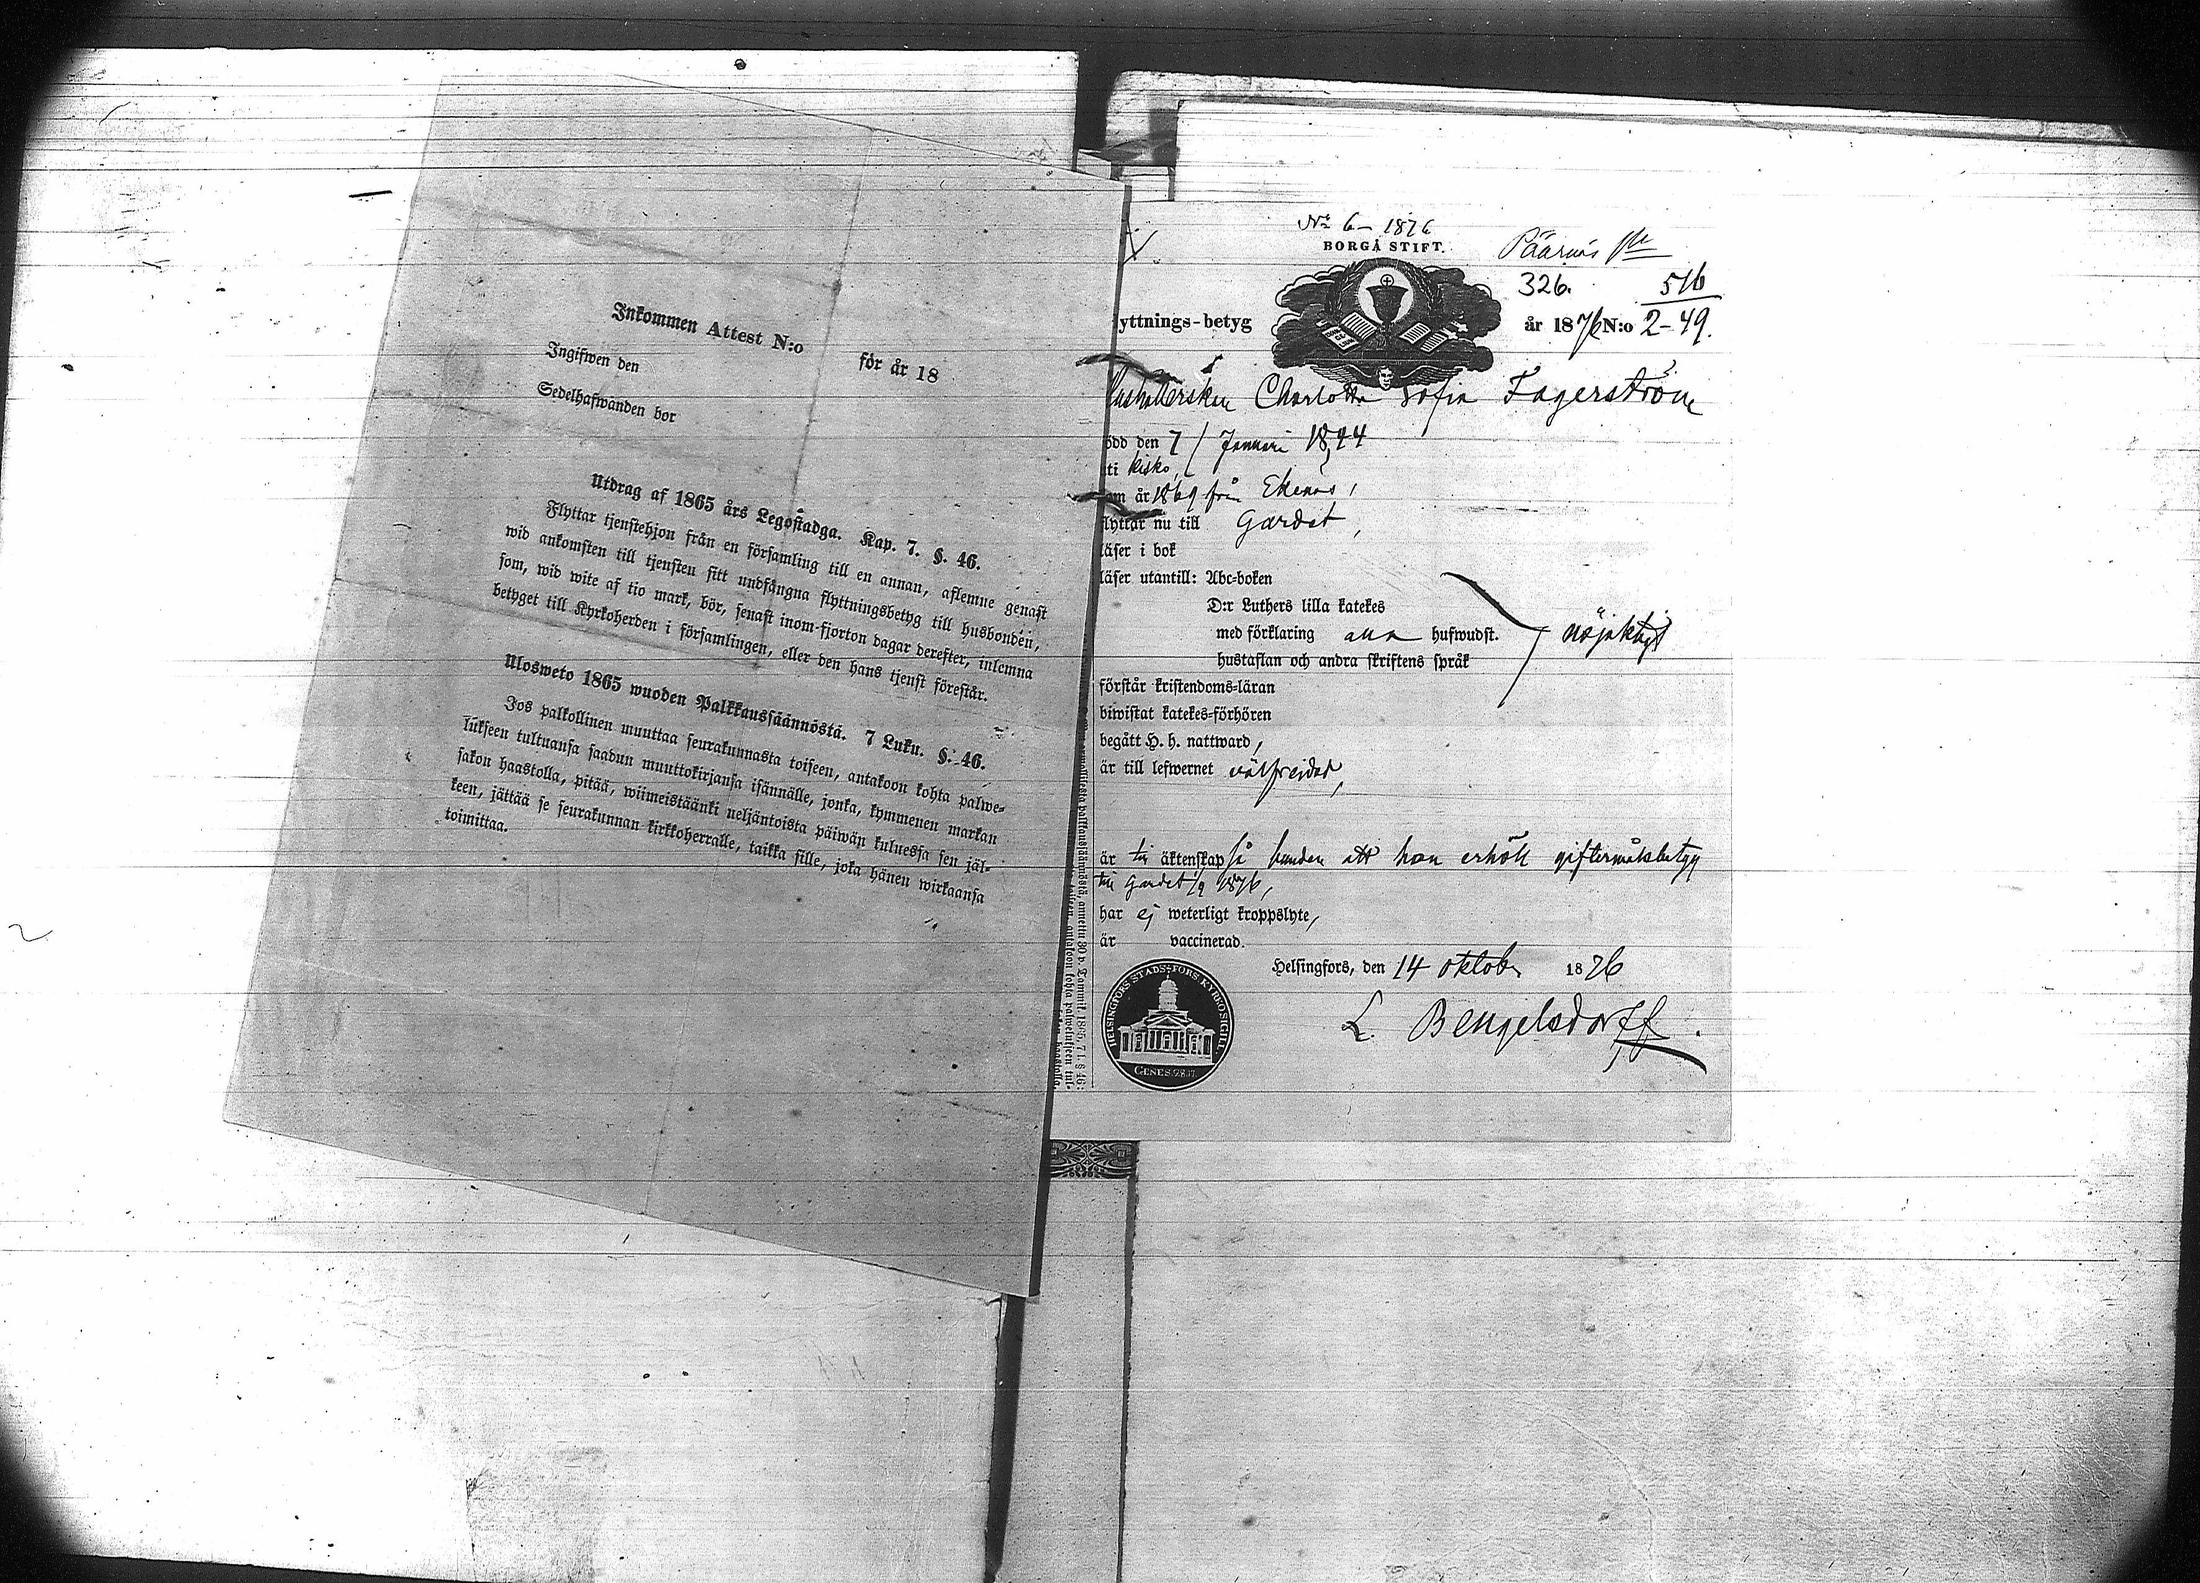 Inkommen Attest N:o för år 18
Ingifwen den
Sedelhafwanden bor
Utdrag af 1865 års Legostadga. Kap. 7. §. 46.
Flyttar tjenstehjon från en församling till en annan, aflemne genast
wid ankomsten till tjensten sitt undfångna flyttningsbetyg till husbonden,
som, wid wite af tio mark, bör, senast inom fjorton dagar derefter, inlemna
betyget till Kyrkoherden i församlingen, eller den hans tjenst förestår.
Ulosweto 1865 wuoden Palkkaussäännöstä. 7 Luku. §. 46.
Jos palkollinen muuttaa seurakunnasta toiseen, antakoon kohta palwe-
lukseen tultuansa saadun muuttokirjansa isännälle, jonka, kymmenen markan
sakon haastolla, pitää, wiimeistäänki neljäntoista päiwän kuluessa sen jäl-
keen, jättää se seurakunnan kirkkoherralle, taikka sille, joka hänen wirkaansa
toimittaa.
No 6 - 1876
BORGÅ STIFT.
326. 516
yttnings-betyg år 1876 N:o 2-49.
Charlotta Sofia Fagerström
ödd den 7/Januari 1844
ti Kisko,
om år 1869 från Ekenäs,
flyttar nu till Gardet,
läser i bok
läser utantill: Abc-boken
D:r Luthers lilla katekes
med förklaring alla hufwudst. nöjaktigt
hustaflan och andra skriftens språk
förstår kristendoms-läran
biwistat katekes-förhören
begått H. h. nattward,
är till lefwernet välfrejdad,
är till äktenskap så bunden att hon erhöll giftermålsbetyg
till Gardet 1/9 1876,
har ej weterligt kroppslyte,
är vaccinerad.
Helsingfors, den 14 oktober 1876
L. Bengelsdorff.
HELSINGFORS STADS-FÖRS. KYRKOSIGILL.
GENES. 28.17.